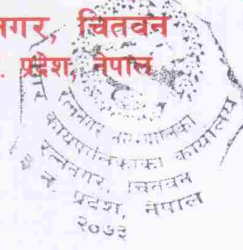 नगर, चितवन
. प्रदेश, नेपाल
रत्ननगर नगरपालिका
कार्यपालिकाको कार्यालय
रत्ननगर, चितवन
प्रदेश, नेपाल
२०७३